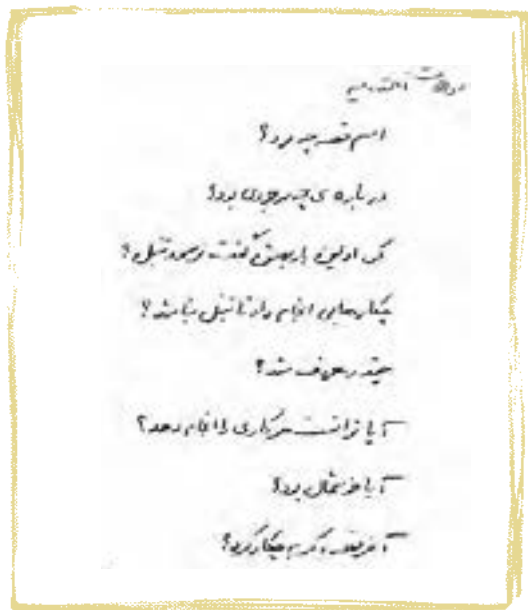 سوالات
اسم قصه چه بود؟
درباره ی چه موجودی بود؟
کی اولین بار بهش گفت موجود تنبل؟
چکارهایی انجام داد تا تنبل نباشد؟
چقدر معروف شد؟
آیا توانست هر کاری را انجام دهد؟
آیا خوشحال بود؟
آخر قصه چکار کرد؟